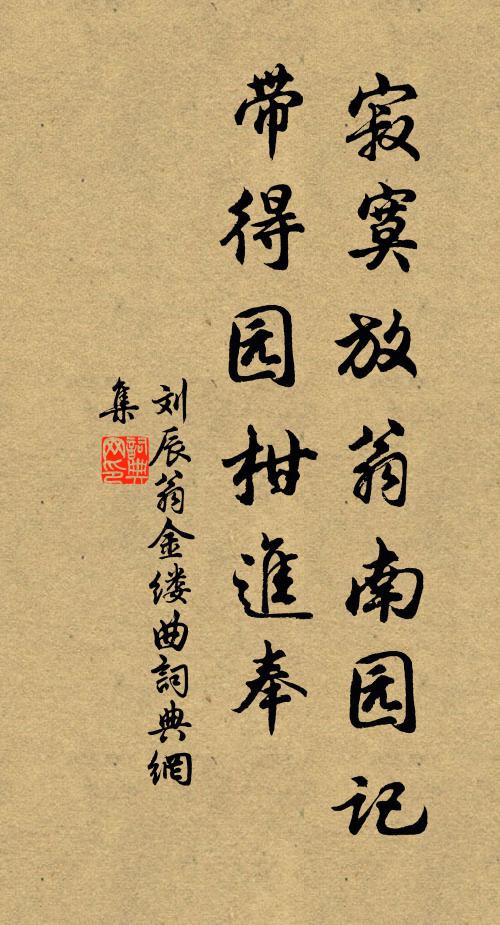 寂寞放翁南园记
带得园柑進奉
刘辰翁金缕曲詞典網
集
詞典
网印